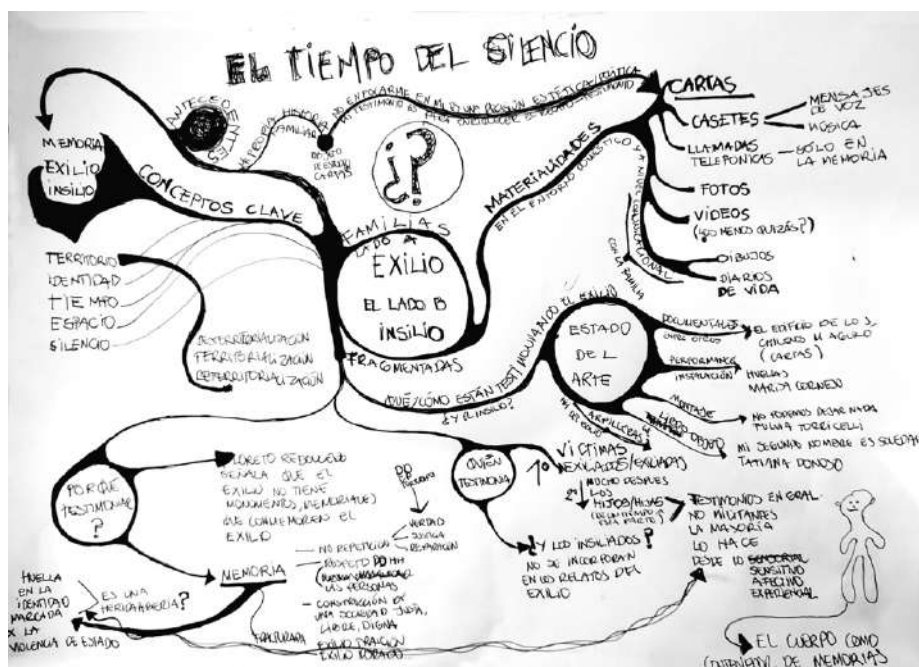 EL TIEMPO DEL SILENCIO
ANTECEDENTES
HISTORIA
FAMILIAR
OBJETO
DE ESTUDIO
CARTAS
MEMORIA
EXILIO
INSILIO
CONCEPTOS CLAVE
TERRITORIO
IDENTIDAD
TIEMPO
ESPACIO
SILENCIO
DESTERRITORIALIZACIÓN
TERRITORIALIZACIÓN
¿?
FAMILIAS
LADO A
EXILIO
EL LADO B
INSILIO
FRAGMENTADAS
MATERIALIDADES
EN EL ENTORNO DOMÉSTICO Y A NIVEL
CON LA FAMILIA
CARTAS
CASETES
MENSAJES
DE VOZ
MÚSICA
LLAMADAS
TELEFÓNICAS
SÓLO EN
LA MEMORIA
FOTOS
VIDEOS
(LOS MENOS QUIZÁS?)
DIBUJOS
DIARIOS
DE VIDA
¿QUÉ/CÓMO ESTÁN TESTIMONIANDO EL EXILIO
¿Y EL INSILIO?
ESTADO
DEL
ARTE
DOCUMENTALES
ENTRE OTROS
EL EDIFICIO DE LOS
CHILENOS M. AGUILÓ
(CARTAS)
PERFORMANCE
INSTALACIÓN
HUELLAS
MARIA CORNEJO
MONTAJE
NO PODEMOS DEJAR NADA
TORRICELLI
LIBRO OBJETO
MI SEGUNDO NOMBRE ES SOLEDAD
TATIANA DONOSO
ARPILLERAS
DEL EXILIO
POR QUÉ
TESTIMONIAR
?
LORETO REBOLLEDO
SEÑALA QUE EL
EXILIO NO TIENE
MONUMENTOS, MEMORIALES
QUE CONMEMOREN EL
EXILIO
MEMORIA
NO REPETICIÓN
VERDAD
JUSTICIA
REPARACIÓN
RESPECTO DDHH
LAS PERSONAS
CONSTRUCCIÓN DE
UNA SOCIEDAD JUSTA,
LIBRE, DIGNA
EXILIO TRAICIÓN
EXILIO DORADO
FRACTURADA
ES UNA
HERRAMIENTA?
HUELLA
EN LA
IDENTIDAD
MARCADA
X LA
VIOLENCIA DE ESTADO
QUIÉN
TESTIMONIA
1º
VÍCTIMAS
EXILIADOS/EXILIADAS
MUCHO DESPUES
2º
LOS
HIJOS/HIJAS
(DE UN TIEMPO A
ESTA PARTE)
¿Y LOS INSILIADOS?
NO SE INCORPORAN
EN LOS RELATOS DEL
EXILIO
TESTIMONIOS EN GRAL.
NO MILITANTES
LA MAYORÍA
LO HACE
DESDE LO SENSORIAL
SENSITIVO
AFECTIVO
EXPERIENCIAL
EL CUERPO COMO
CONTENEDOR DE MEMORIAS